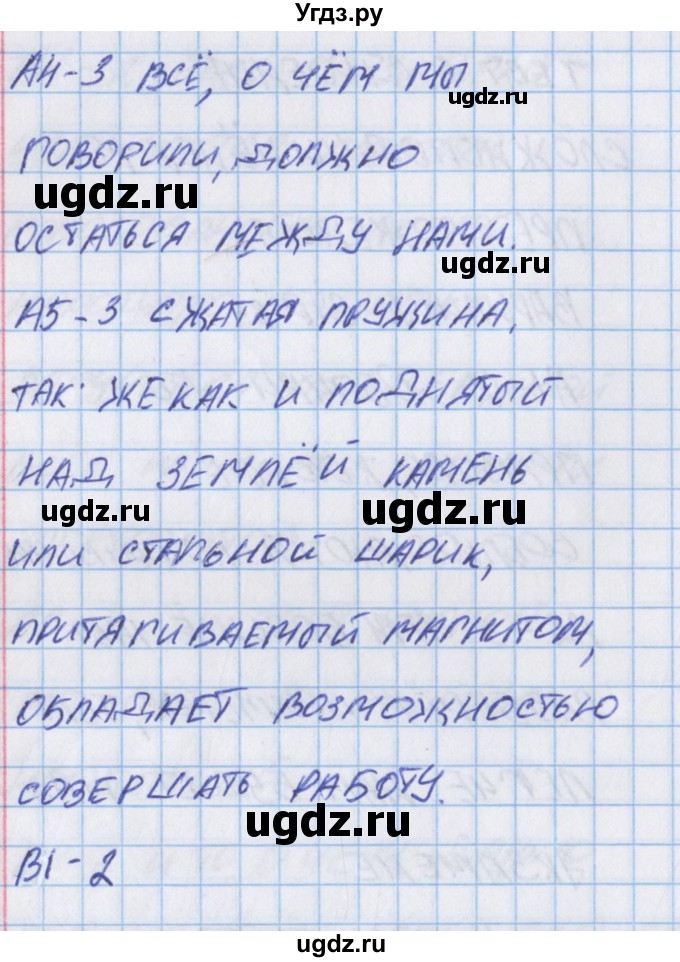 Угдз.ру
А4-3 ВСЁ, О ЧЁМ МЫ
ugdz.ru
ГОВОРИЛИ, ДОЛЖНО
ugdz.ru
ОСТАТЬСЯ МЕЖДУ НАМИ.
ugdz.ru
А5-3 СЖАТАЯ ПРУЖИНА,
ТАК ЖЕ КАК И ПОДНЯТЫЙ
НАД ЗЕМЛЁЙ КАМЕНЬ
ugdz.ru
ugdz.ru
ИЛИ СТАЛЬНОЙ ШАРИК,
ПРИТЯГИВАЕМЫЙ МАГНИТОМ,
ОБЛАДАЕТ ВОЗМОЖНОСТЬЮ
СОВЕРШАТЬ РАБОТУ.
ugdz.ru
В1-2
ugdz.ru